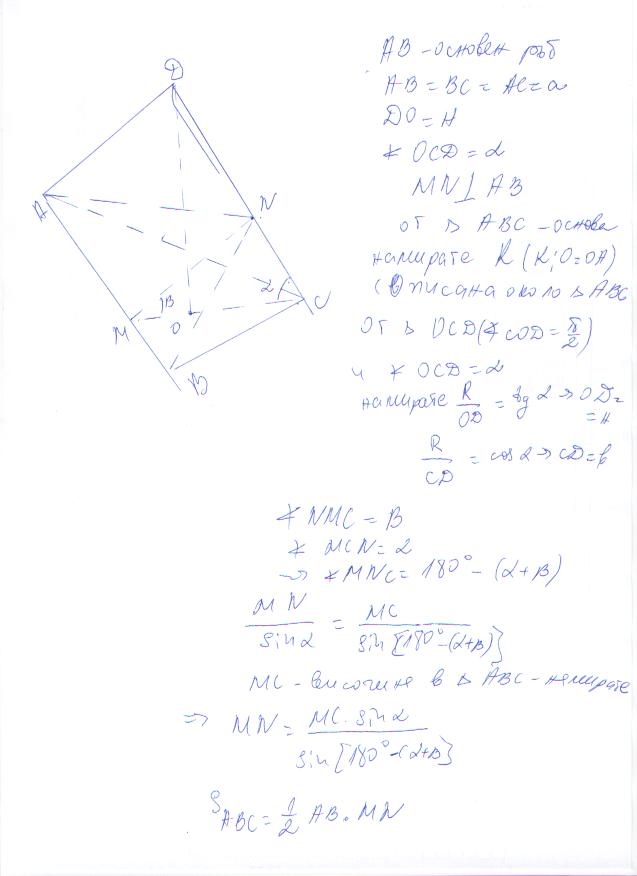 D
A
N
M
β
O
α
C
B
AB - основен ръб
AB = BC = AC = a
DO = H
∢ OCD = α
MN ⊥ AB
от △ ABC - основа
намирате R (K; O = OA)
(Описана около △ ABC
От △ OCD (∢ COD = π/2)
и ∢ OCD = α
намирате R/OD = tg α → OD =
= H
R/CD = cos α → CD = b
∢ NMC = β
∢ MCN = α
→ ∢ MNC = 180° - (α + β)
MN/sin α = MC/sin [180° - (α + β)]
MC - височина в △ ABC - намирате
⇒ MN = MC . sin α/sin [180° - (α + β)]
S ABC = 1/2 AB . MN